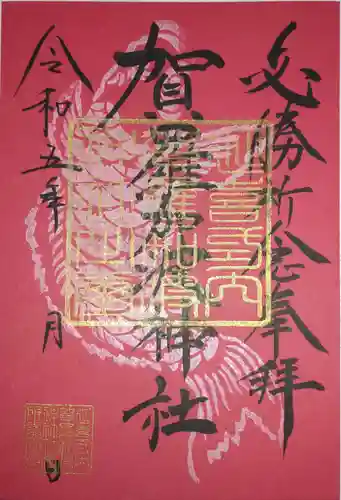 必勝祈念奉拝
賀羅加波神社
令和五年 月 日